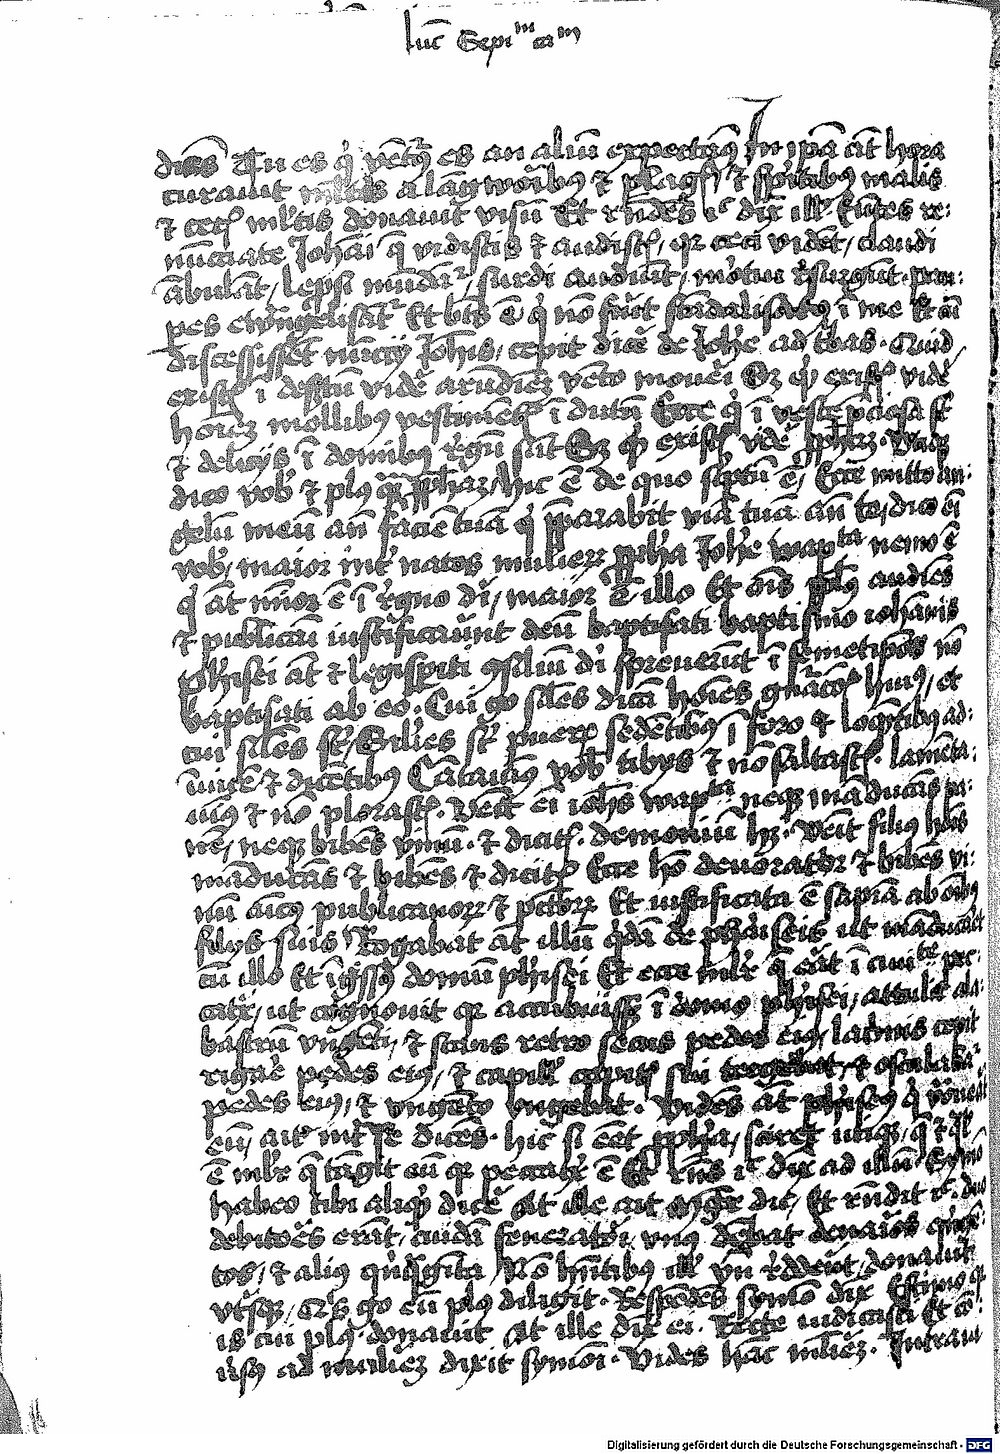 luc Septimum
dicens Tu es qui venturus es an alium expectamus In ipsa autem hora
curavit multos a languoribus et plagis et spiritibus malis
et cecis multis donavit visum Et respondens ihc dixit illis Euntes re:
nunciate Johanni que vidistis et audistis, quia ceci vident, claudi
ambulant, leprosi mundantur, surdi audiunt, mortui resurgunt pau:
peres ewangelisantur Et beatus est qui non fuerit scandalisatus in me Et cum
discessissent nuncii Johannis, cepit dicere de Johanne ad turbas. Quid
existis in desertum videre arundinem vento moveri Sed quid existis videre
hominem mollibus vestimentis indutum Ecce qui in veste preciosa sunt
et deliciis in domibus regum sunt Sed quid existis videre prophetam. Utique
dico vobis et plus quam prophetam, hic est de quo scriptum est, Ecce mitto an:
gelum meum ante faciem tuam qui preparabit viam tuam ante te, dico enim
vobis, maior inter natos mulierum propheta Johanne waptista nemo est
qui autem minor est in regno dei, maior est illo Et omnis populus audiens
et publicani iustificaverunt deum baptisati baptismo iohannis
pharisei autem et legisperiti consilium dei spreverunt in semetipsos non
baptisati ab eo. Cui ergo similes dicam homines generationis huius, et
cui similes sunt, Similes sunt pueris sedentibus in foro et loquentibus ad:
invicem et dicentibus Cantavimus vobis tibiis et non saltastis. lamenta:
vimus et non plorastis. Venit enim iohannes waptista neque manducans pa:
nem, neque bibens vinum. et dicitis. demonium habet. Venit filius hominis
manducans et bibens et dicitis Ecce homo devorator et bibens vi:
num amicus publicanorum et peccatorum Et iustificata est sapiencia ab omnibus
filiis suis Rogabat autem illum quidam de phariseis ut manducaret
cum illo Et ingressus domum pharisei Et ecce mulier que erat in civitate pec:
catrix, ut cognovit quia accubuisset in domo pharisei, attulit ala:
bastrum unguenti, et stans retro secus pedes eius, lacrimis cepit
rigare pedes eius, et capillis capitis sui tergebat, et osculabatur
pedes eius, et ungento ungebat. Videns autem phariseus qui vocaverat
eum, ait intra se dicens. hic si esset propheta, sciret utique, que et qualis
est mulier que tangit eum quia peccatrix est Et respondens ihc dixit ad illum Symon
habeo tibi aliquid dicere At ille ait Magister dic, Et respondit ihc. duo
debitores erant, cuidam feneratori, unus debebat denarios quingen:
tos, et alius quinquaginta Non habentibus illis unde redderent, donavit
utrisque, Quis ergo eum plus diligit. Respondens symon dixit Estimo quia
is cui plus donavit At ille dixit ei. Recte iudicasti Et con:
versus ad mulierem dixit symoni. Vides hanc mulierem. Intravi
Digitalisierung gefördert durch die Deutsche Forschungsgemeinschaft - DFG